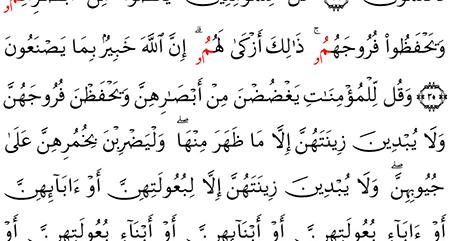 وَيَحْفَظُوا۟ فُرُوجَهُمُۥ ۚ ذَٰلِكَ أَزْكَىٰ لَهُمُۥ ۗ إِنَّ ٱللَّهَ خَبِيرٌۢ بِمَا يَصْنَعُونَ
وَقُل لِّلْمُؤْمِنَٰتِ يَغْضُضْنَ مِنْ أَبْصَٰرِهِنَّ وَيَحْفَظْنَ فُرُوجَهُنَّ
وَلَا يُبْدِينَ زِينَتَهُنَّ إِلَّا مَا ظَهَرَ مِنْهَا ۖ وَلْيَضْرِبْنَ بِخُمُرِهِنَّ عَلَىٰ
جُيُوبِهِنَّ ۖ وَلَا يُبْدِينَ زِينَتَهُنَّ إِلَّا لِبُعُولَتِهِنَّ أَوْ ءَابَآئِهِنَّ
أَوْ ءَابَآءِ بُعُولَتِهِنَّ أَوْ أَبْنَآئِهِنَّ أَوْ أَبْنَآءِ بُعُولَتِهِنَّ أَوْ